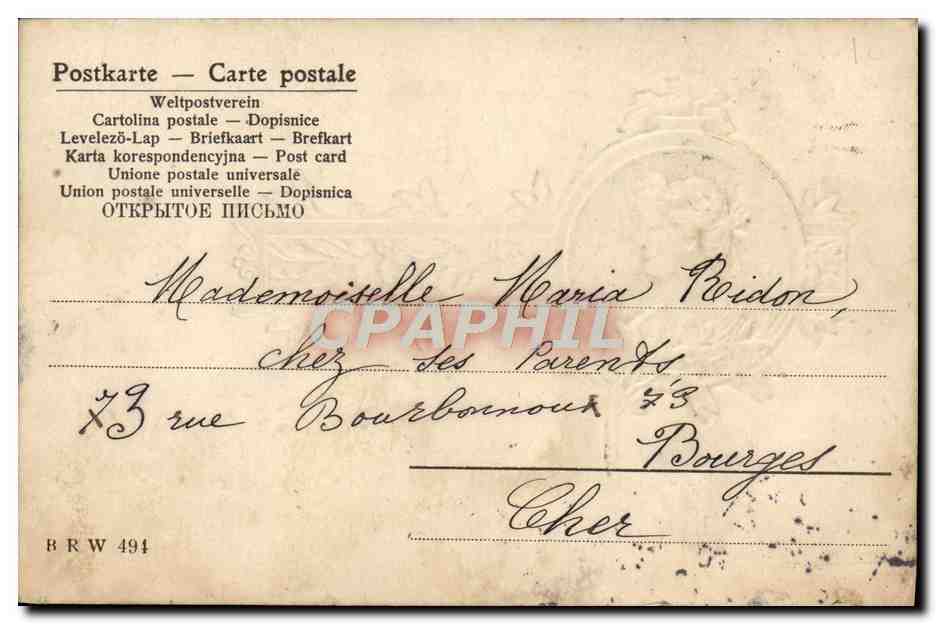 Postkarte — Carte postale
Weltpostverein
Cartolina postale — Dopisnice
Levelező-Lap — Briefkaart — Brefkart
Karta korespondencyjna — Post card
Unione postale universale
Union postale universelle — Dopisnica
ОТКРЫТОЕ ПИСЬМО
Mademoiselle Maria Ridon,
CPAPHIL
chez ses Parents,
73 rue Bourbonnoux 73
Bourges
Cher
B R W 494